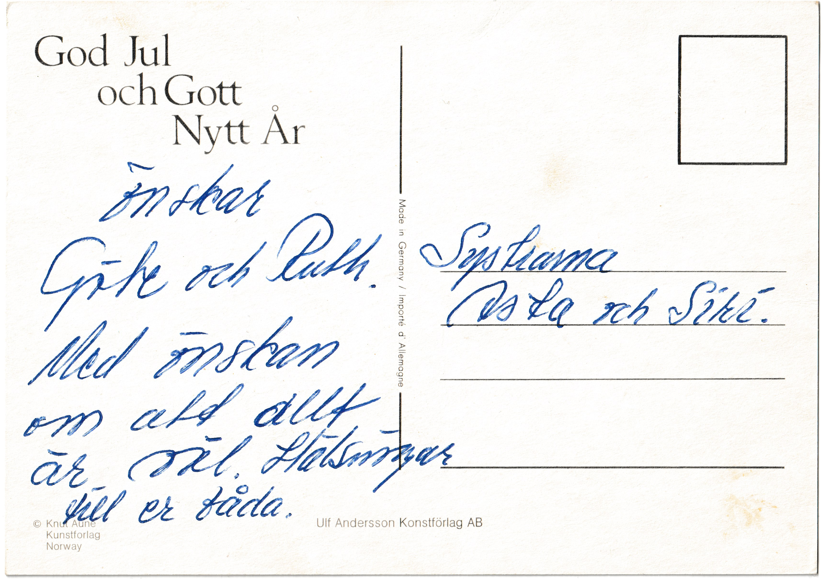 God Jul
och Gott
Nytt År
önskar
Göte och Ruth.
Med önskan
om att allt
är väl. Hälsningar
till er båda.
© Knut Aune
Kunstforlag
Norway
Ulf Andersson Konstförlag AB
Made in Germany / Importé d'Allemagne
Systrarna
Asta och Siri.